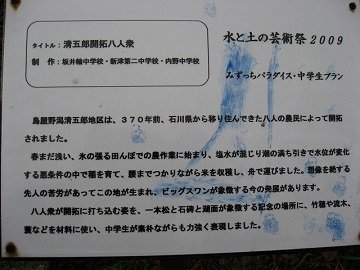 タイトル：清五郎開拓八人衆
制　作：坂井輪中学校・新津第二中学校・内野中学校
水と土の芸術祭2009
みずっちパラダイス・中学生プラン
鳥屋野潟清五郎地区は、３７０年前、石川県から移り住んできた八人の農民によって開拓
されました。
春まだ浅い、氷の張る田んぼでの農作業に始まり、塩水が混じり潮の満ち引きで水位が変化
する悪条件の中で稲を育て、腰までつかりながら米を収穫し、舟で運びました。想像を絶する
先人の苦労があってこの地が生まれ、ビッグスワンが象徴する今の発展があります。
八人衆が開拓に打ち込む姿を、一本松と石碑と湖面が象徴する記念の場所に、竹穂や流木、
蓑などを材料に使い、中学生が素朴ながらも力強く表現しました。